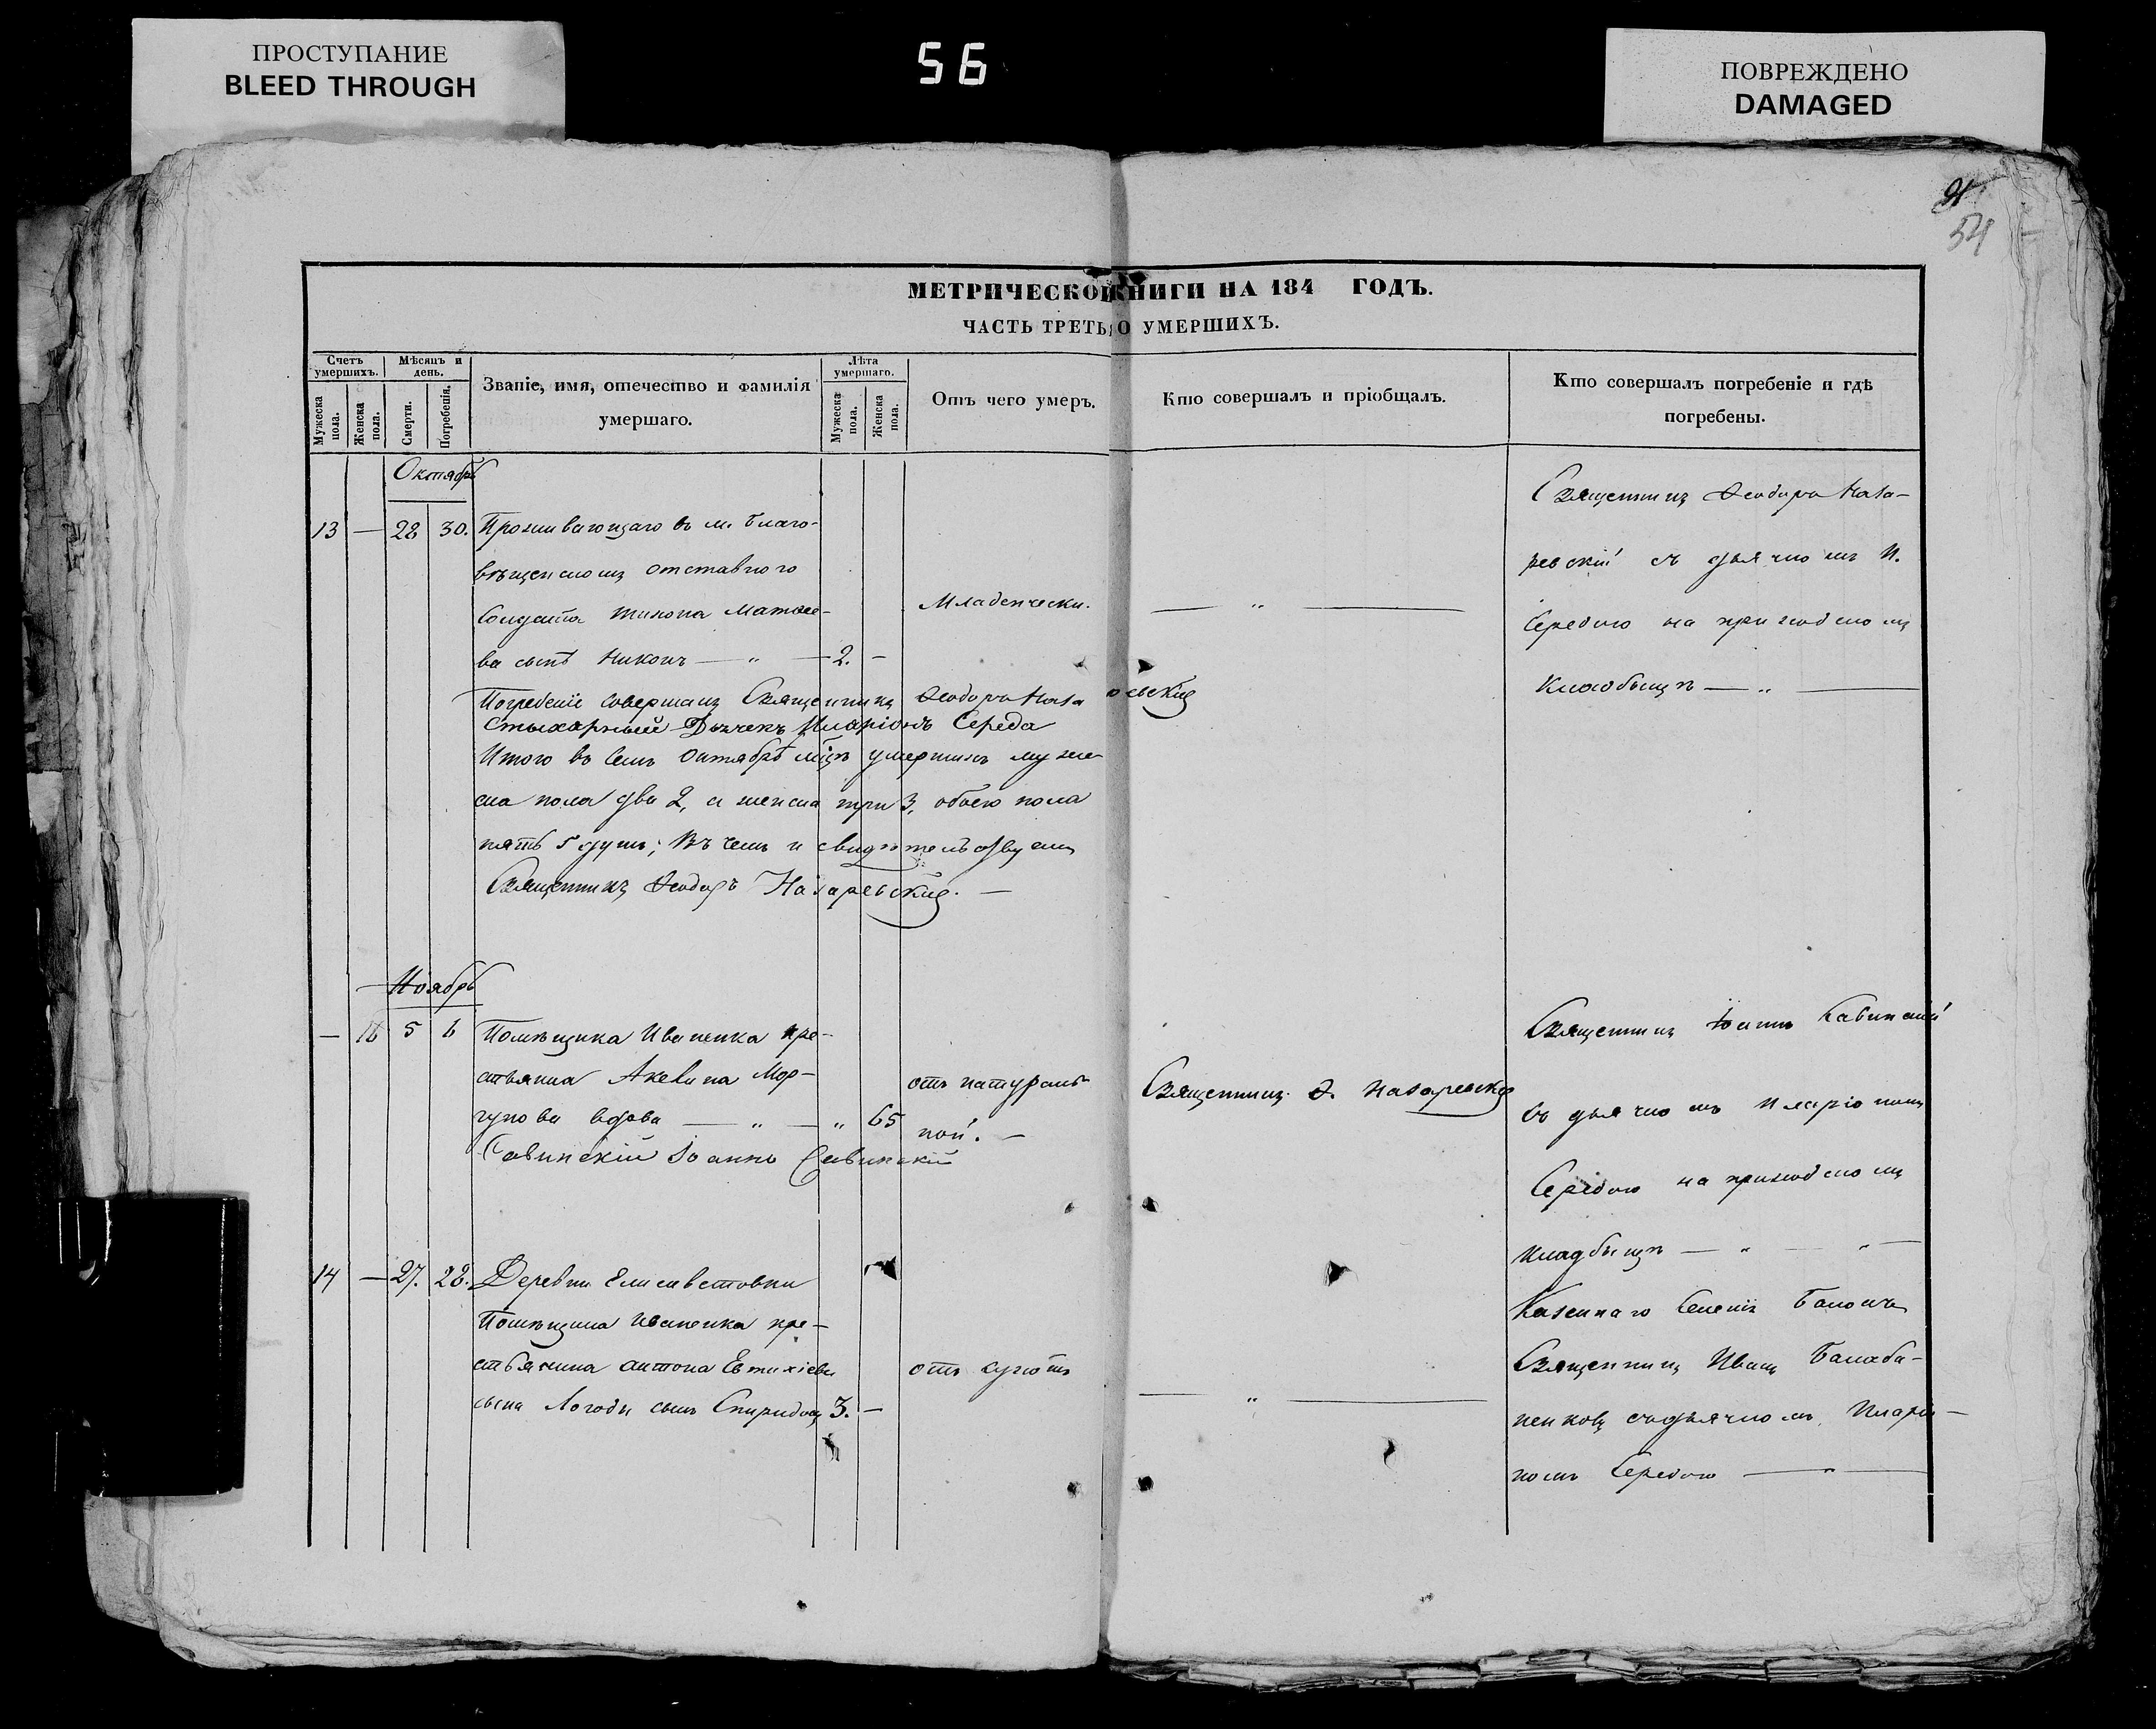 ПРОСТУПАНИЕ
BLEED THROUGH
56
ПОВРЕЖДЕНО
DAMAGED
54
МЕТРИЧЕСКОЙ КНИГИ НА 184 ГОДЪ.
ЧАСТЬ ТРЕТЬЯ О УМЕРШИХЪ.
Счетъ умершихъ.
Мужеска пола.
Женска пола.
Мѣсяцъ и день.
Смерти.
Погребенія.
Званіе, имя, отечество и фамилія умершаго.
Лѣта умершаго.
Мужеска пола.
Женска пола.
Отъ чего умеръ.
Кто совершалъ и пріобщалъ.
Кто совершалъ погребеніе и гдѣ погребены.
Октябрь
13 — 28 30. Проживающаго въ м. Благо-
вѣщенскомъ отставного
Солдата Тихона Матвее-
ва сынъ Никонъ — „ — 2. —
Младенчески.
— „ —
Священникъ Ѳеодоръ Наза-
ревскій съ дьячкомъ И.
Середою на приходскомъ
кладбищѣ — „ —
Погребеніе совершалъ Священникъ Ѳеодоръ Назаревскій
Стыхарный Дьячекъ Иларіонъ Середа
Итого въ семъ Октябрѣ мцѣ умершихъ муже-
ска пола два 2, а женска три 3, обоего пола
пять 5 душъ; Въ чемъ и свидѣтельствуемъ
Священникъ Ѳеодоръ Назаревскій. —
Ноябрь
— 16 5 6 Помѣщика Иваненка кре-
стьянка Акевина Мор-
гунова вдова — „ — „ 65
отъ натураль-
ной. —
Священникъ Ѳ. Назаревскій
Священникъ Іоаннъ Савинскій
съ дьячкомъ Иларіономъ
Середою на приходскомъ
кладбищѣ — „ — „ —
Савинскій Іоаннъ Савинскій
14 — 27. 28. Деревни Елисаветовки
Помѣщика Иваненка кре-
стьянина Антона Евтихіева
сына Логоды сынъ Спиридонъ 3. —
— „ —
Казеннаго Селенія
Священникъ Иванъ Балаба-
ненковъ съ дьячкомъ Иларіо-
номъ Середою — „ —